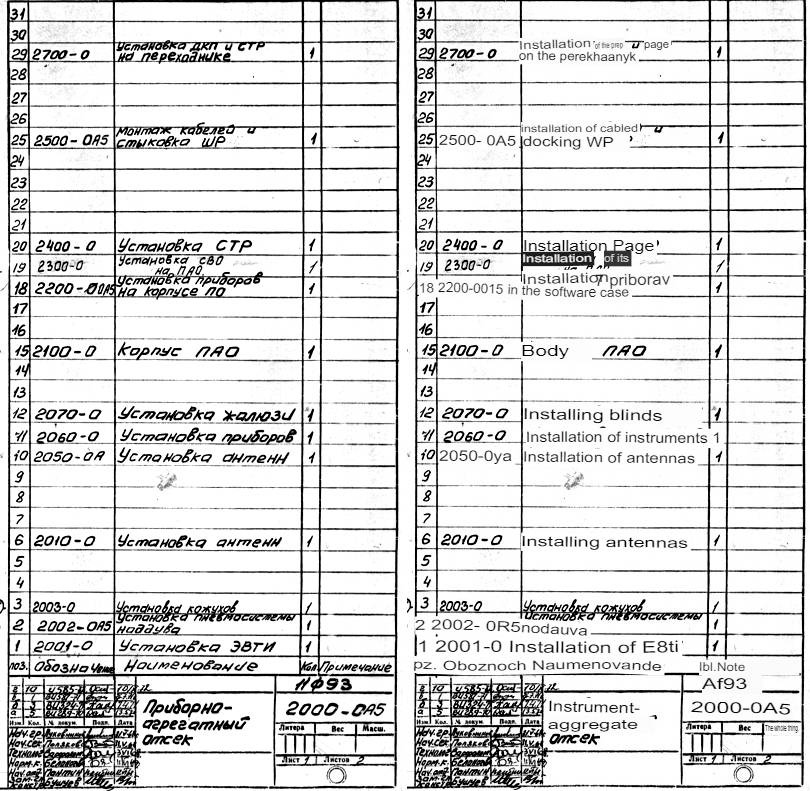 31
30
29 2700-0 Установка ДКП и СТР
на переходнике 1
28
27
26
25 2500-0А5 Монтаж кабелей и
стыковка ШР 1
24
23
22
21
20 2400-0 Установка СТР 1
19 2300-0 Установка СВО
на ПАО 1
18 2200-0А5 Установка приборов
на корпусе ПО 1
17
16
15 2100-0 Корпус ПАО 1
14
13
12 2070-0 Установка жалюзи 1
11 2060-0 Установка приборов 1
10 2050-0А Установка антенн 1
9
8
7
6 2010-0 Установка антенн 1
5
4
3 2003-0 Установка кожухов 1
2 2002-0А5 Установка пневмосистемы
наддува 1
1 2001-0 Установка ЭВТИ 1
поз. Обозначение Наименование Кол Примечание
11Ф93
Приборно-
агрегатный
отсек
2000-0А5
Изм. Кол. № докум. Подп. Дата
Литера Вес Масш.
Лист 1 Листов 2
31
30
29 2700-0 Installation of the prep и page
on the perekhaanyk 1
28
27
26
25 2500- 0A5 installation of cabled и
docking WP 1
24
23
22
21
20 2400-0 Installation Page 1
19 2300-0 Installation of its 1
18 2200-0015 in the software case Installation priborav 1
17
16
15 2100-0 Body ПАО 1
14
13
12 2070-0 Installing blinds 1
11 2060-0 Installation of instruments 1
10 2050-0ya Installation of antennas 1
9
8
7
6 2010-0 Installing antennas 1
5
4
3 2003-0 Установка кожухов 1
Установка пневмосистемы
2 2002- 0R5nodauva
1 2001-0 Installation of E8ti
pz. Oboznoch Naumenovande lbl.Note
Af93
Instrument-
aggregate
отсек
2000-0A5
Изм. Кол. № докум. Подп. Дата
Литера Вес The whole thing
Лист 1 Листов 2